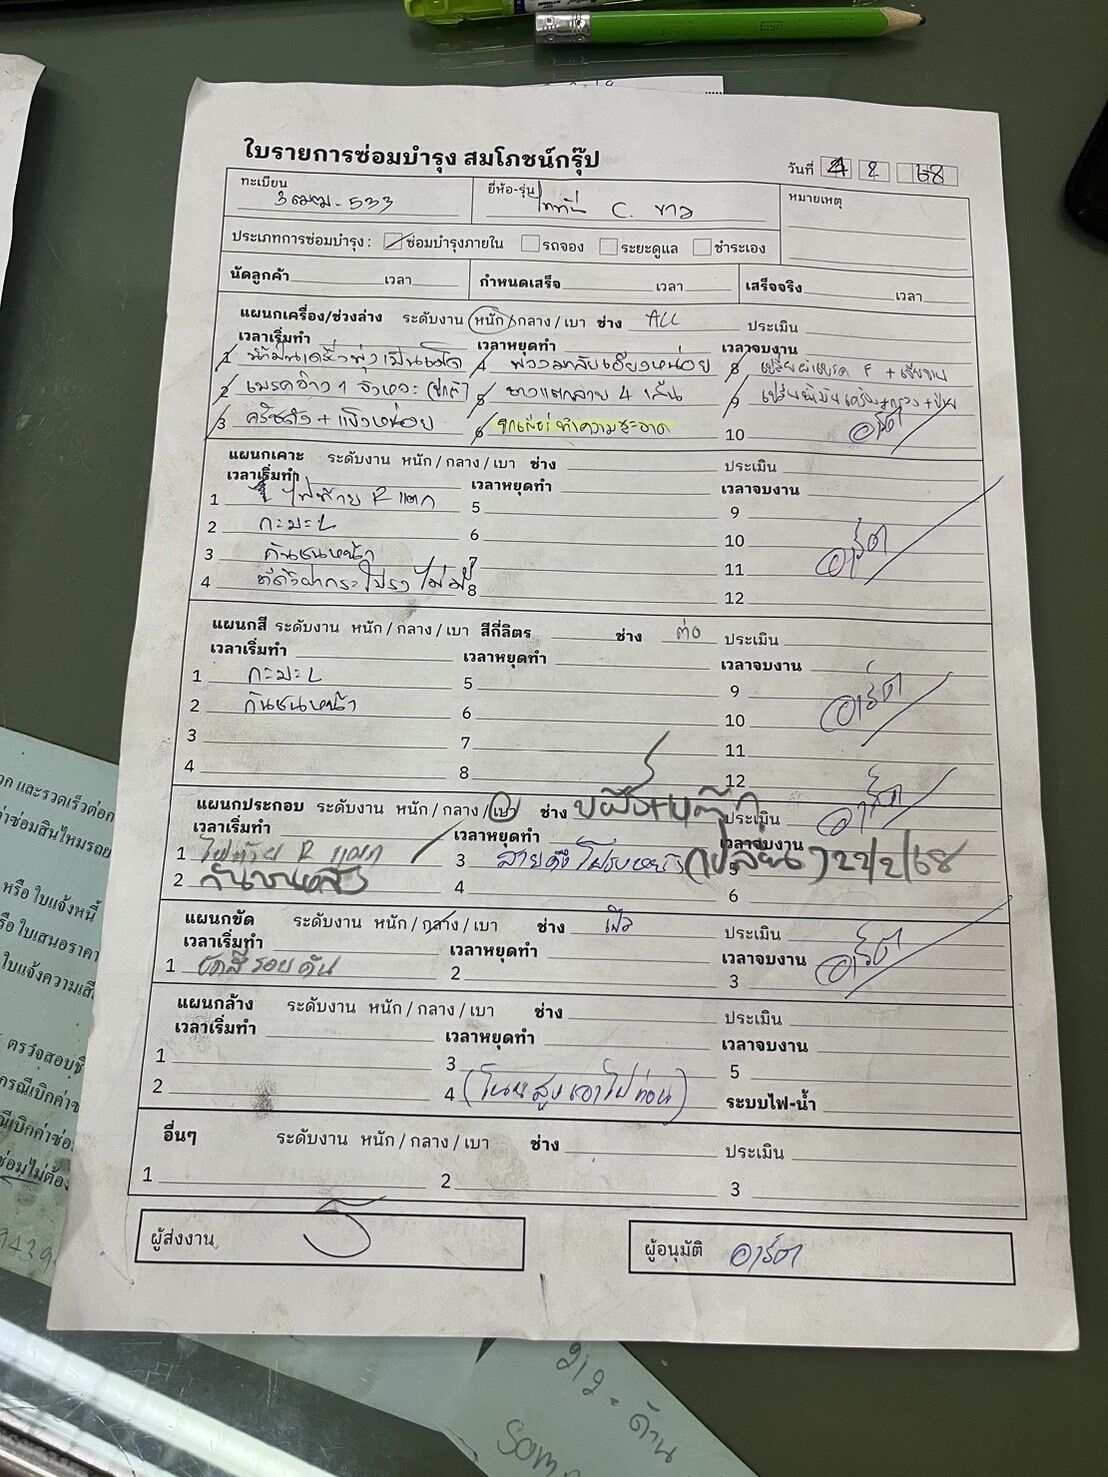 ใบรายการซ่อมบำรุง สมโภชน์กรุ๊ป
วันที่ 4 2 68
ทะเบียน 3ฒฒ-533 ยี่ห้อ-รุ่น C. ขาว หมายเหตุ
ประเภทการซ่อมบำรุง : ซ่อมบำรุงภายใน รถจอง ระยะดูแล ชำระเอง
นัดลูกค้า เวลา กำหนดเสร็จ เวลา เสร็จจริง เวลา
แผนกเครื่อง/ช่วงล่าง ระดับงาน หนัก/กลาง/เบา ช่าง ALL ประเมิน
เวลาเริ่มทำ เวลาหยุดทำ เวลาจบงาน
1 น้ำมันเครื่อง 4 พวงมาลัยเอียงหน่อย 8 F +
2 เบรค 1 จังหวะ 5 ยางแตกลาย 4 เส้น 9
3 ครัชดัง + แข็งหน่อย 6 ทำความสะอาด 10 อาร์ต
แผนกเคาะ ระดับงาน หนัก/กลาง/เบา ช่าง ประเมิน
เวลาเริ่มทำ เวลาหยุดทำ เวลาจบงาน
1 ไฟท้าย R แตก 5 9
2 กะบะ L 6 10 อาร์ต
3 กันชนหน้า 7 11
4 ฝากระโปรง ไม่มี 8 12
แผนกสี ระดับงาน หนัก/กลาง/เบา สีกี่ลิตร ช่าง ต่อ ประเมิน
เวลาเริ่มทำ เวลาหยุดทำ เวลาจบงาน
1 กะบะ L 5 9
2 กันชนหน้า 6 10 อาร์ต
3 7 11
4 8 12
แผนกประกอบ ระดับงาน หนัก/กลาง/เบา ช่าง ประเมิน อาร์ต
เวลาเริ่มทำ เวลาหยุดทำ เวลาจบงาน
1 ไฟท้าย R แตก 3 สายดึง (เปลี่ยน) 22/2/68 5
2 4 6
แผนกขัด ระดับงาน หนัก/กลาง/เบา ช่าง ประเมิน
เวลาเริ่มทำ เวลาหยุดทำ เวลาจบงาน
1 ขัดสีรอบคัน 2 3 อาร์ต
แผนกล้าง ระดับงาน หนัก/กลาง/เบา ช่าง ประเมิน
เวลาเริ่มทำ เวลาหยุดทำ เวลาจบงาน
1 3 5
2 4 (โนนสูงเอาไปก่อน) ระบบไฟ-น้ำ
อื่นๆ ระดับงาน หนัก/กลาง/เบา ช่าง ประเมิน
1 2 3
ผู้ส่งงาน ผู้อนุมัติ อาร์ต
2/2 - ด้าน